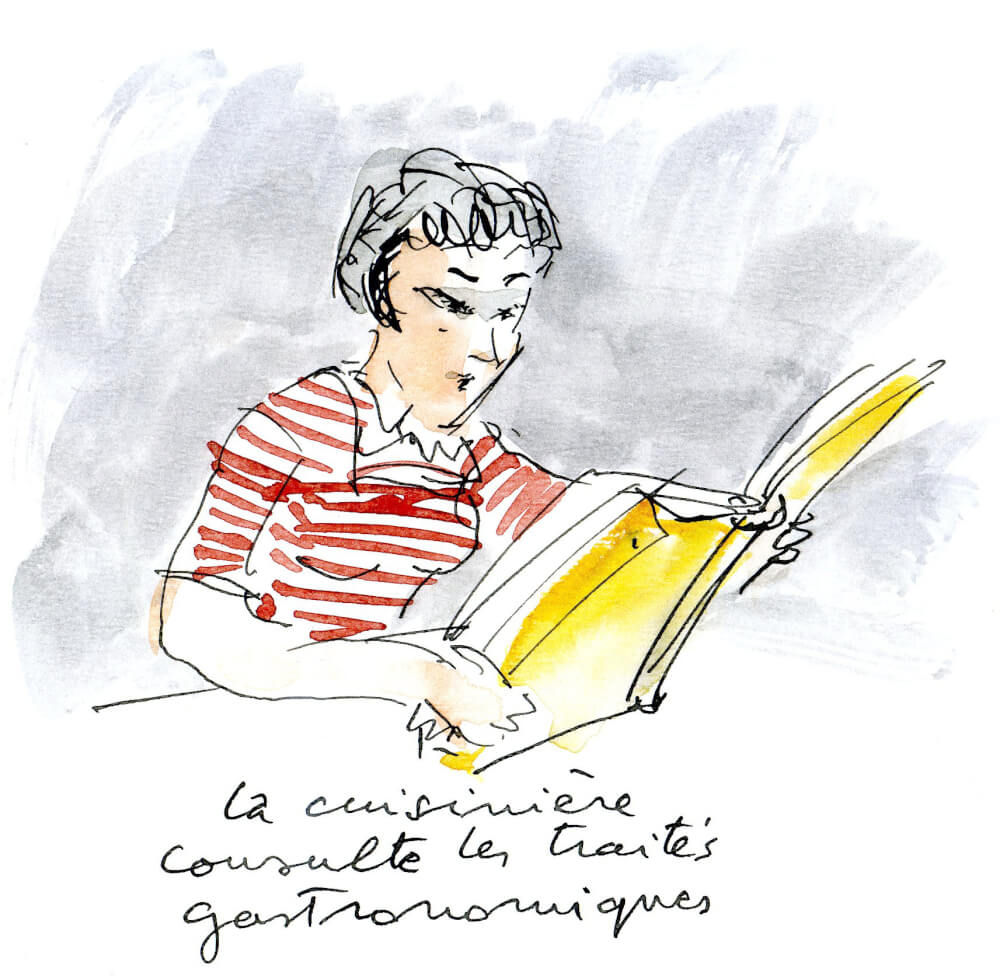 la cuisinière
consulte les traités
gastronomiques